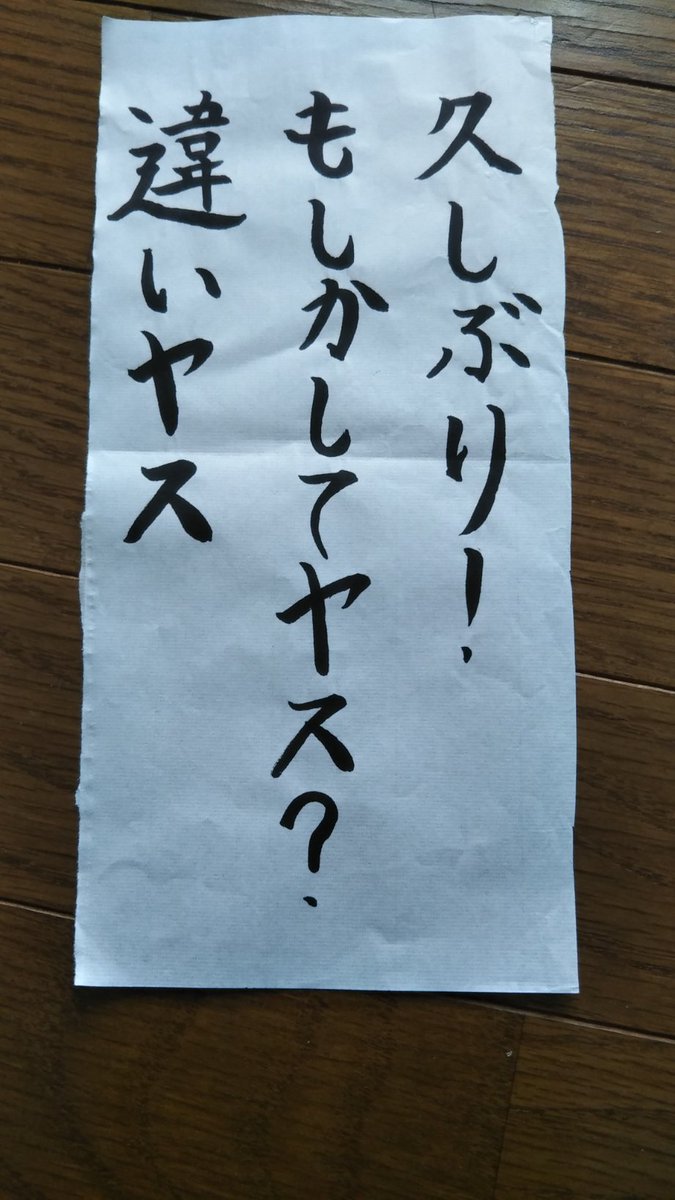 久しぶり！
もしかしてヤス？
違いヤス